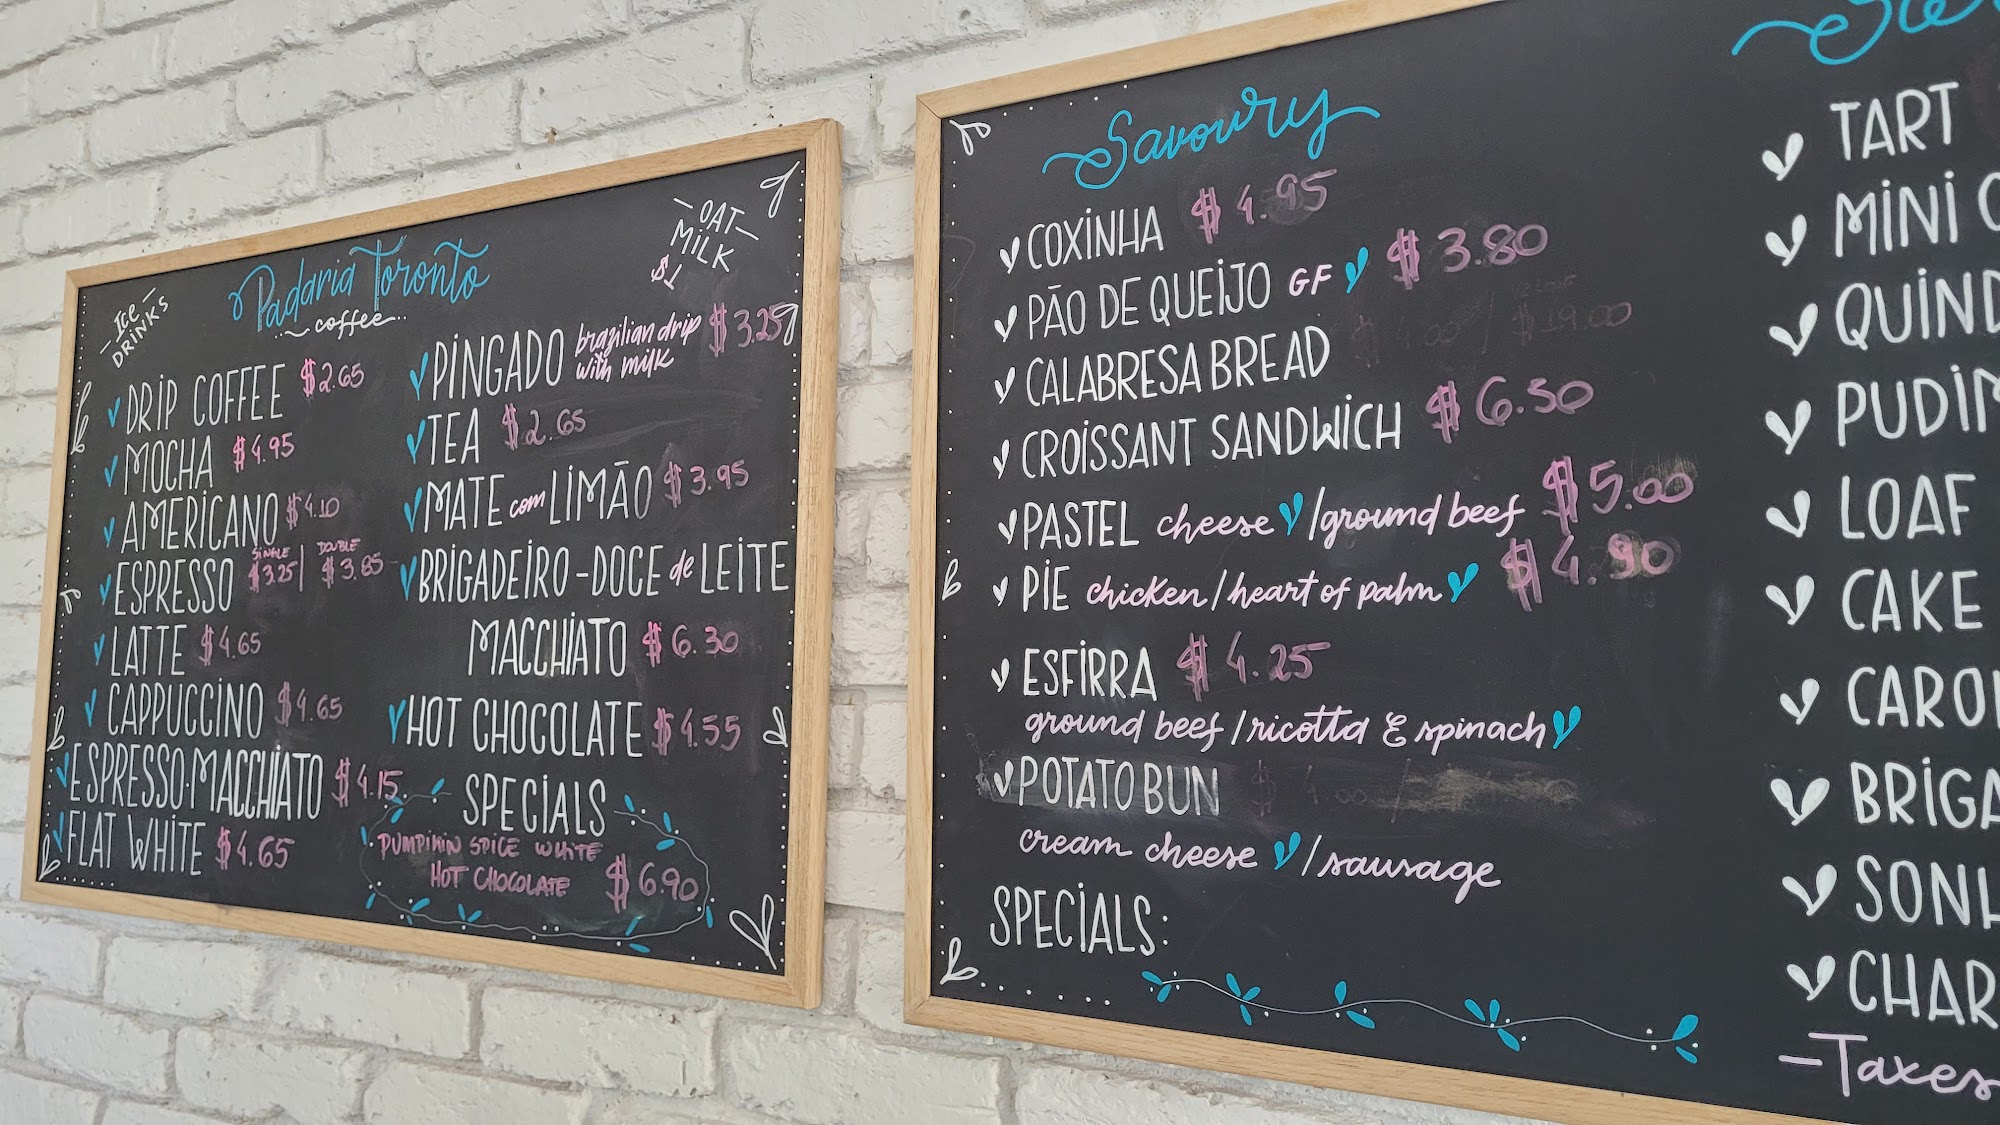 Ice DRINKS
Padaria Toronto
coffee
OAT MILK $1
DRIP COFFEE $2.65
MOCHA $4.95
AMERICANO $4.10
ESPRESSO SINGLE $3.25 | DOUBLE $3.85
LATTE $4.65
CAPPUCCINO $4.65
ESPRESSO·MACCHIATO $4.15
FLAT WHITE $4.65
PINGADO brazilian drip with milk $3.25
TEA $2.65
MATE com LIMÃO $3.95
BRIGADEIRO-DOCE de LEITE
MACCHIATO $6.30
HOT CHOCOLATE $4.55
SPECIALS
PUMPIKIN SPICE WHITE
HOT CHOCOLATE $6.90
Savoury
COXINHA $4.95
PÃO DE QUEIJO GF $3.80
CALABRESA BREAD $4.00 / $19.00
CROISSANT SANDWICH $6.50
PASTEL cheese / ground beef $5.00
PIE chicken / heart of palm $4.90
ESFIRRA $4.25
ground beef / ricotta & spinach
POTATO BUN $4.00 /
cream cheese / sausage
SPECIALS:
TART
MINI
QUIND
PUDIM
LOAF
CAKE
CAROL
BRIGA
SONH
CHAR
-Taxes